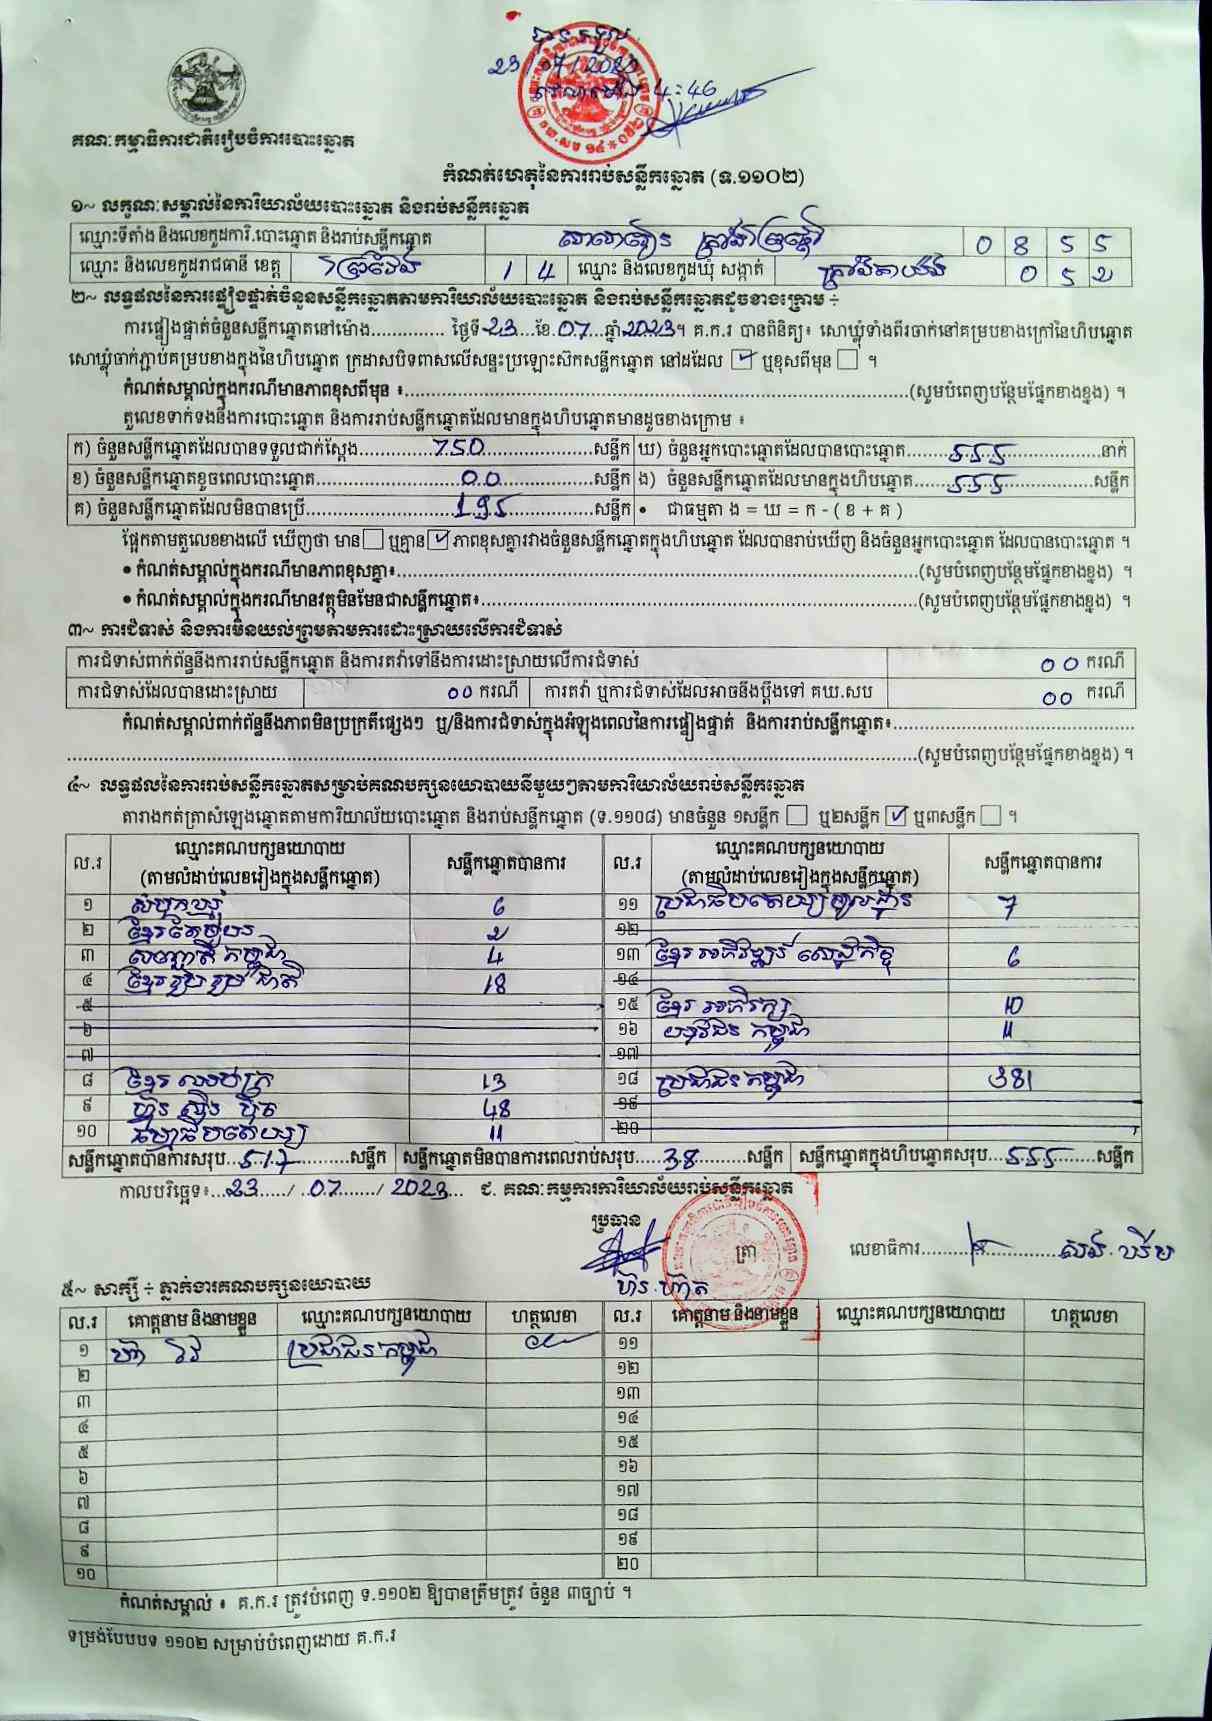 23/07/2023
4:46
គណៈកម្មាធិការជាតិរៀបចំការបោះឆ្នោត
កំណត់ហេតុនៃការរាប់សន្លឹកឆ្នោត (ទ.១១០២)
១~ លក្ខណៈសម្គាល់នៃការិយាល័យបោះឆ្នោត និងរាប់សន្លឹកឆ្នោត
ឈ្មោះទីតាំង និងលេខកូដការិ.បោះឆ្នោត និងរាប់សន្លឹកឆ្នោត សាលារៀន 0 8 5 5
ឈ្មោះ និងលេខកូដរាជធានី ខេត្ត ព្រៃវែង 1 4 ឈ្មោះ និងលេខកូដឃុំ សង្កាត់ 0 5 2
២~ លទ្ធផលនៃការផ្ទៀងផ្ទាត់ចំនួនសន្លឹកឆ្នោតតាមការិយាល័យបោះឆ្នោត និងរាប់សន្លឹកឆ្នោតដូចខាងក្រោម ÷
ការផ្ទៀងផ្ទាត់ចំនួនសន្លឹកឆ្នោតនៅម៉ោង.............. ថ្ងៃទី 23 ខែ 07 ឆ្នាំ 2023។ គ.ក.រ បានពិនិត្យ៖ សោឃ្លុំទាំងពីរចាក់នៅគម្របខាងក្រៅនៃហិបឆ្នោត
សោឃ្លុំចាក់ភ្ជាប់គម្របខាងក្នុងនៃហិបឆ្នោត ក្រដាសបិទពាសលើសន្ទះប្រឡោះស៊កសន្លឹកឆ្នោត នៅដដែល ☑ ឬខុសពីមុន ☐ ។
កំណត់សម្គាល់ក្នុងករណីមានភាពខុសពីមុន ៖..............(សូមបំពេញបន្ថែមផ្នែកខាងខ្នង) ។
តួលេខទាក់ទងនឹងការបោះឆ្នោត និងការរាប់សន្លឹកឆ្នោតដែលមានក្នុងហិបឆ្នោតមានដូចខាងក្រោម ៖
ក) ចំនួនសន្លឹកឆ្នោតដែលបានទទួលជាក់ស្តែង......750......សន្លឹក ឃ) ចំនួនអ្នកបោះឆ្នោតដែលបានបោះឆ្នោត......555......នាក់
ខ) ចំនួនសន្លឹកឆ្នោតខូចពេលបោះឆ្នោត......00......សន្លឹក ង) ចំនួនសន្លឹកឆ្នោតដែលមានក្នុងហិបឆ្នោត......555......សន្លឹក
គ) ចំនួនសន្លឹកឆ្នោតដែលមិនបានប្រើ......195......សន្លឹក • ជាធម្មតា ង = ឃ = ក - ( ខ + គ )
ផ្អែកតាមតួលេខខាងលើ ឃើញថា មាន ☐ ឬគ្មាន ☑ ភាពខុសគ្នារវាងចំនួនសន្លឹកឆ្នោតក្នុងហិបឆ្នោត ដែលបានរាប់ឃើញ និងចំនួនអ្នកបោះឆ្នោត ដែលបានបោះឆ្នោត ។
• កំណត់សម្គាល់ក្នុងករណីមានភាពខុសគ្នា៖..............(សូមបំពេញបន្ថែមផ្នែកខាងខ្នង) ។
• កំណត់សម្គាល់ក្នុងករណីមានវត្ថុមិនមែនជាសន្លឹកឆ្នោត៖..............(សូមបំពេញបន្ថែមផ្នែកខាងខ្នង) ។
៣~ ការជំទាស់ និងការមិនយល់ព្រមតាមការដោះស្រាយលើការជំទាស់
ការជំទាស់ពាក់ព័ន្ធនឹងការរាប់សន្លឹកឆ្នោត និងការតវ៉ាទៅនឹងការដោះស្រាយលើការជំទាស់ 00 ករណី
ការជំទាស់ដែលបានដោះស្រាយ 00 ករណី ការតវ៉ា ឬការជំទាស់ដែលអាចនឹងប្តឹងទៅ គឃ.សប 00 ករណី
កំណត់សម្គាល់ពាក់ព័ន្ធនឹងភាពមិនប្រក្រតីផ្សេងៗ ឬ/និងការជំទាស់ក្នុងអំឡុងពេលនៃការផ្ទៀងផ្ទាត់ និងការរាប់សន្លឹកឆ្នោត៖..............
..............(សូមបំពេញបន្ថែមផ្នែកខាងខ្នង) ។
៤~ លទ្ធផលនៃការរាប់សន្លឹកឆ្នោតសម្រាប់គណបក្សនយោបាយនីមួយៗតាមការិយាល័យរាប់សន្លឹកឆ្នោត
តារាងកត់ត្រាសំឡេងឆ្នោតតាមការិយាល័យបោះឆ្នោត និងរាប់សន្លឹកឆ្នោត (ទ.១១០៨) មានចំនួន ១សន្លឹក ☐ ឬ២សន្លឹក ☑ ឬ៣សន្លឹក ☐ ។
ល.រ ឈ្មោះគណបក្សនយោបាយ (តាមលំដាប់លេខរៀងក្នុងសន្លឹកឆ្នោត) សន្លឹកឆ្នោតបានការ ល.រ ឈ្មោះគណបក្សនយោបាយ (តាមលំដាប់លេខរៀងក្នុងសន្លឹកឆ្នោត) សន្លឹកឆ្នោតបានការ
១ សំបុកឃ្មុំ 6 ១១ ប្រជាធិបតេយ្យមូលដ្ឋាន 7
២ ខ្មែរតែមួយ 2 ១២
៣ សញ្ជាតិកម្ពុជា 4 ១៣ ខ្មែរអភិវឌ្ឍន៍សេដ្ឋកិច្ច 6
៤ ខ្មែររួបរួមជាតិ 18 ១៤
៥ ១៥ ខ្មែរអភិរក្ស 10
៦ ១៦ យុវជនកម្ពុជា 11
៧ ១៧
៨ ខ្មែរឈប់ក្រ 13 ១៨ ប្រជាជនកម្ពុជា 381
៩ ហ៊្វុនស៊ិនប៉ិច 48 ១៩
១០ ធម្មាធិបតេយ្យ 11 ២០
សន្លឹកឆ្នោតបានការសរុប...517...សន្លឹក សន្លឹកឆ្នោតមិនបានការពេលរាប់សរុប...38...សន្លឹក សន្លឹកឆ្នោតក្នុងហិបឆ្នោតសរុប...555...សន្លឹក
កាលបរិច្ឆេទ៖...23.../...07.../ 2023... ជ. គណៈកម្មការការិយាល័យរាប់សន្លឹកឆ្នោត
ប្រធាន
ត្រា លេខាធិការ
៥~ សាក្សី ÷ ភ្នាក់ងារគណបក្សនយោបាយ
ល.រ គោត្តនាម និងនាមខ្លួន ឈ្មោះគណបក្សនយោបាយ ហត្ថលេខា ល.រ គោត្តនាម និងនាមខ្លួន ឈ្មោះគណបក្សនយោបាយ ហត្ថលេខា
១ ប្រជាជនកម្ពុជា ១១
២ ១២
៣ ១៣
៤ ១៤
៥ ១៥
៦ ១៦
៧ ១៧
៨ ១៨
៩ ១៩
១០ ២០
កំណត់សម្គាល់ ៖ គ.ក.រ ត្រូវបំពេញ ទ.១១០២ ឱ្យបានត្រឹមត្រូវ ចំនួន ៣ច្បាប់ ។
ទម្រង់បែបបទ ១១០២ សម្រាប់បំពេញដោយ គ.ក.រ